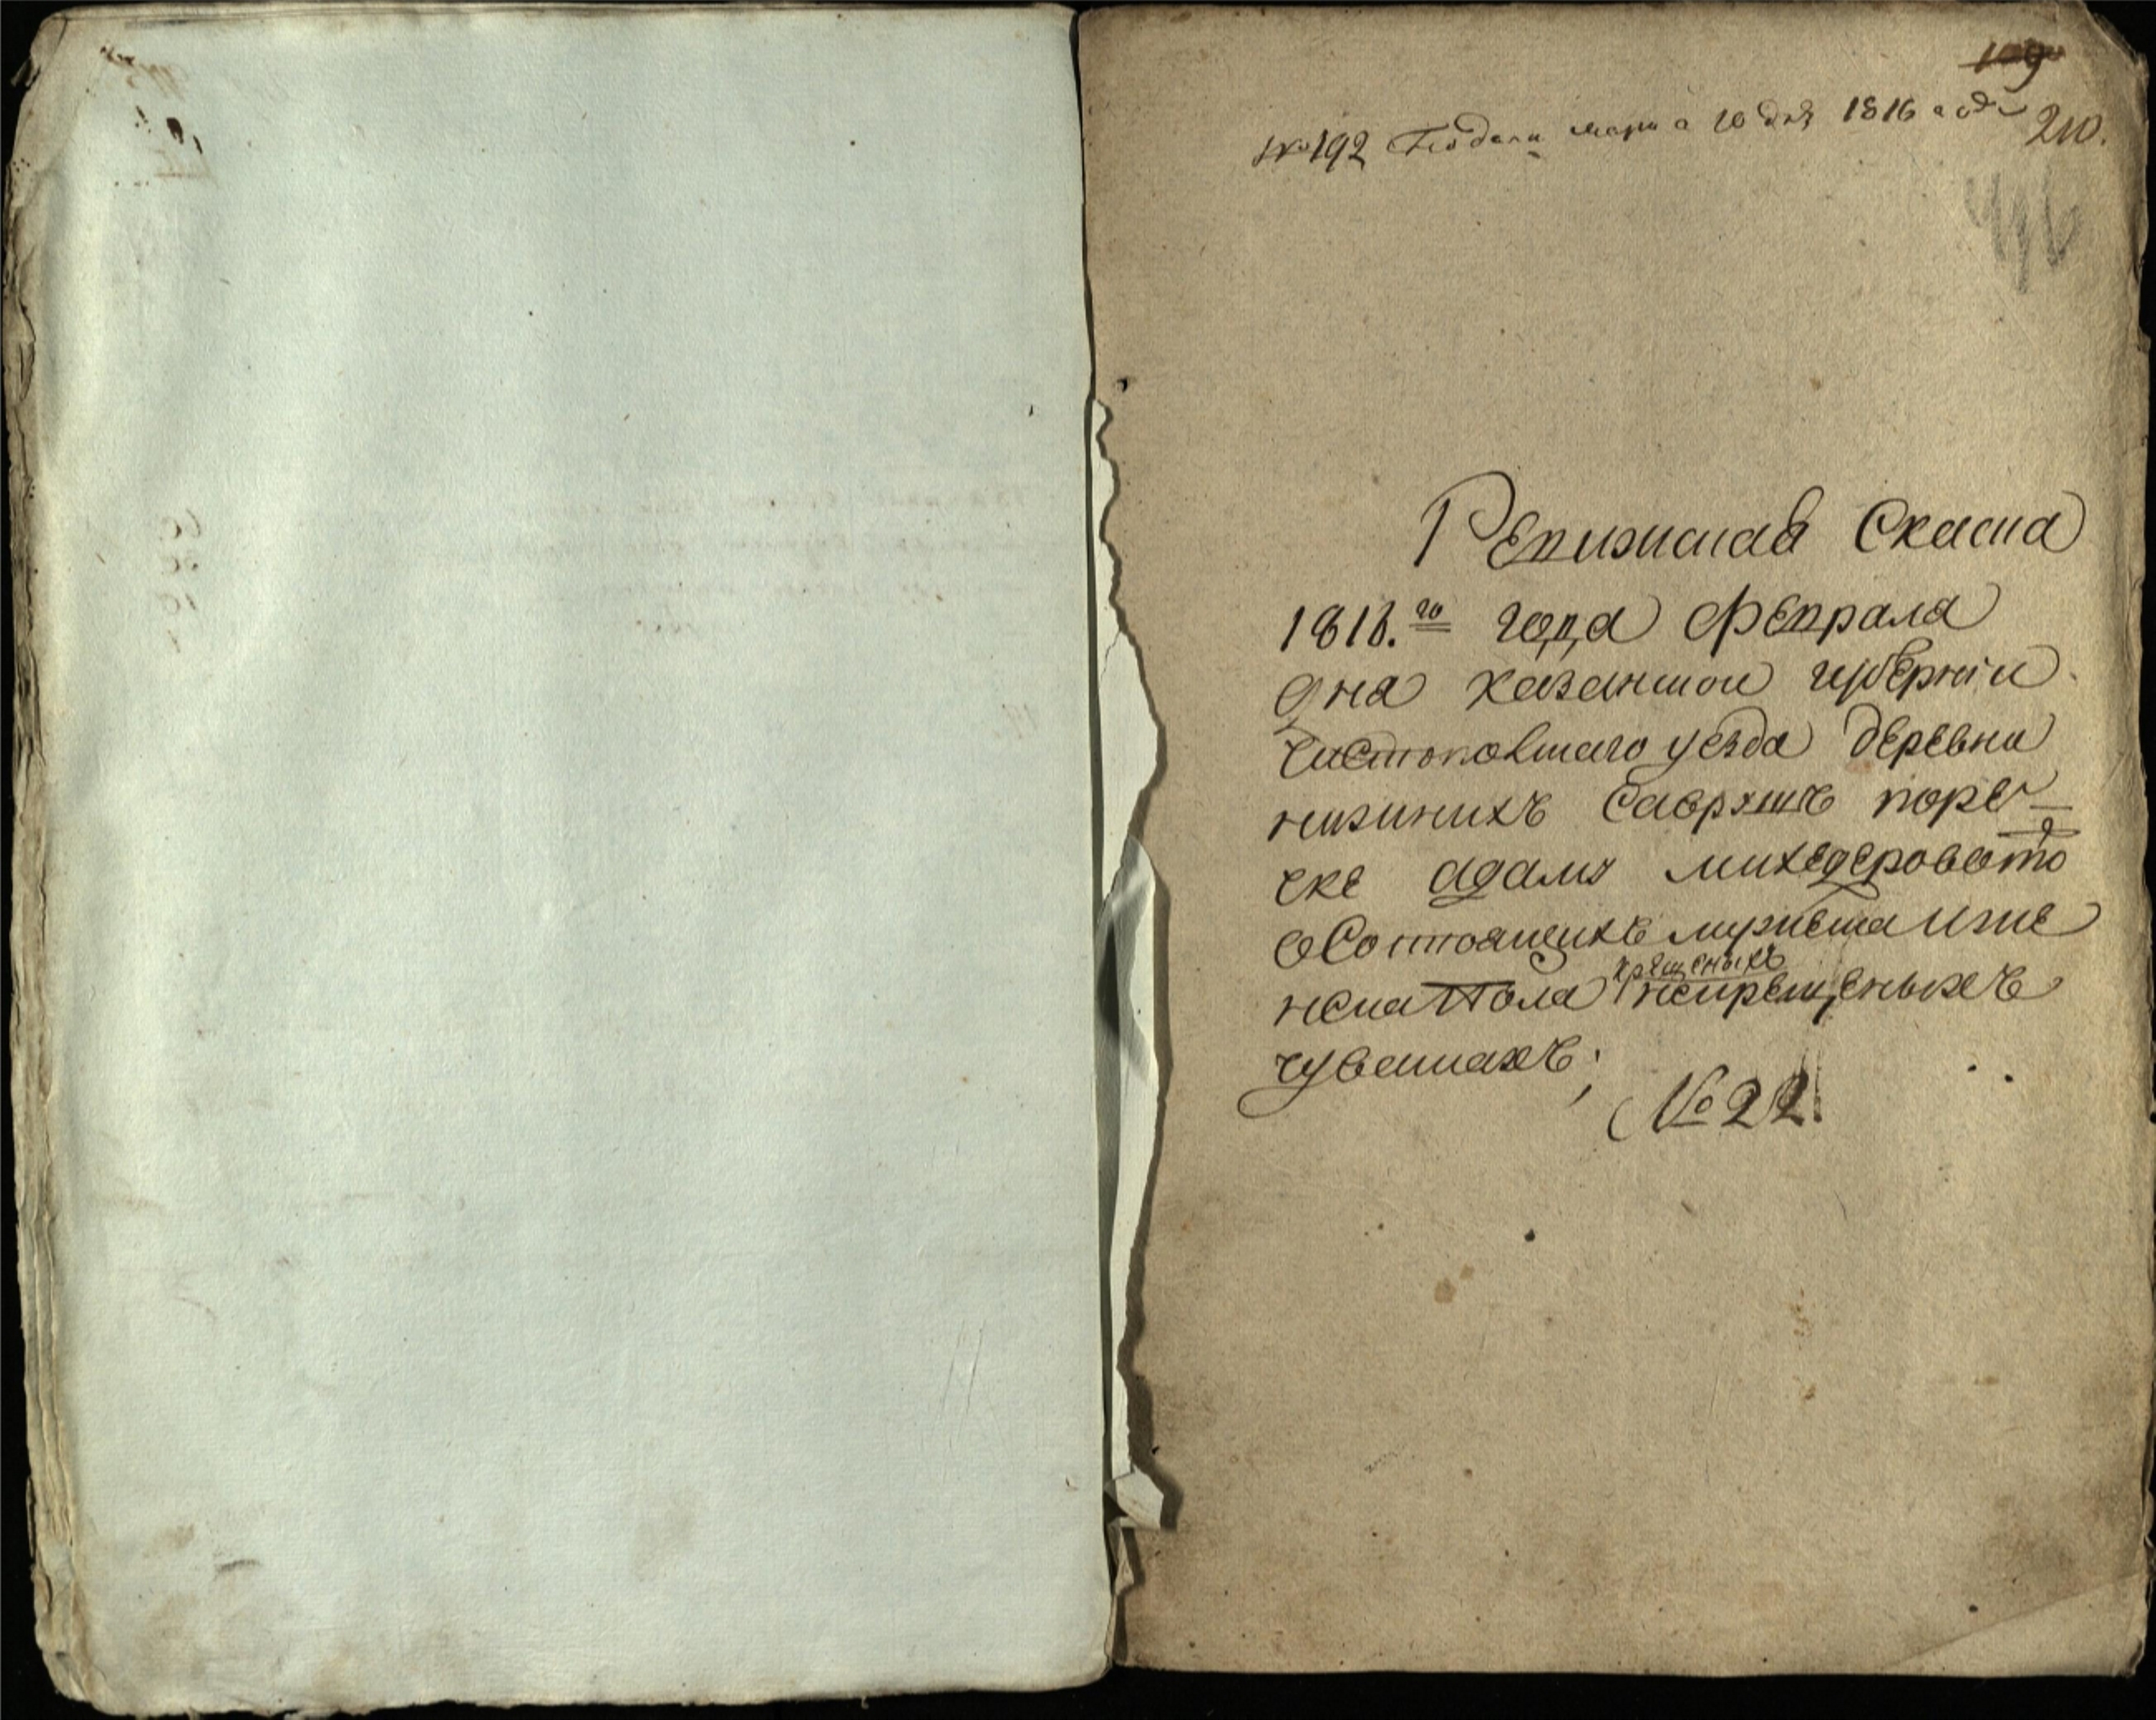 109
№ 192 Подана марта 10 дня 1816 года 210.
Ревижская Скаска
1816.го года февраля
дня казанской губернии
чистопольскаго уезда деревни
нижнихъ Саврушъ поре
чке адамъ михедеровой то
о Состоящихъ мужеска и же
нска пола некрещеныхъ
крещеныхъ
чувашахъ;
№ 22